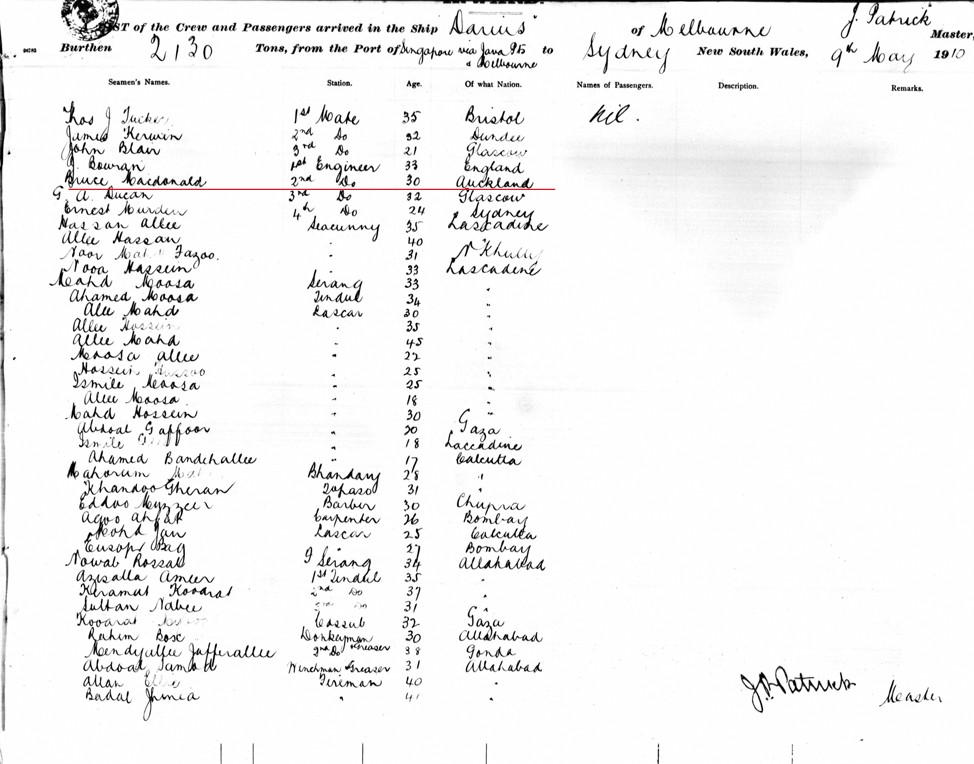 LIST of the Crew and Passengers arrived in the Ship "Darius" of Melbourne J. Patrick Master,
Burthen 2130 Tons, from the Port of Singapore via Java & Melbourne to Sydney New South Wales, 9th May 1910
Seamen's Names. Station. Age. Of what Nation. Names of Passengers. Description. Remarks.
Thos J Tucker 1st Mate 35 Bristol Nil.
James Kerwin 2nd Do 32 Dundee
John Blair 3rd Do 21 Glascow
J Bowran 1st Engineer 33 England
Bruce Macdonald 2nd Do 30 Auckland
G. A. Ducan 3rd Do 32 Glascow
Ernest Murden 4th Do 24 Sydney
Hassan Allee Seacunny 35 Lascadine
Allee Hassan " 40
Noor Fazoo. " 31
Nooa Hassein " 33 Lascadine
Mahd Moosa Serang 33 "
Ahamed Moosa Tindul 34 "
Alee Mahd Lascar 30 "
Allee Hossein " 35 "
Allee Mahd " 45 "
Moosa Allee " 22 "
Hossein " 25 "
Ismile Moosa " 25 "
Allee Moosa " 18 "
Mahd Hossein " 30 "
Abdoal Gaffoor " 20 Gaza
Ismile " 18 Laccadine
Ahamed Bandehallee " 17 Calcutta
Mahorum Bhandary 28 "
Khandoo Gheran Topaso 31 "
Eddoo Muzzeer Barber 30 Chupra
Agoo Ahfar Carpenter 26 Bombay
Mohd Jan Lascar 25 Calcutta
Eusop Bag " 27 Bombay
Nowab Rossal F Serang 34 Allahabad
Azisalla Ameer 1st Tindul 35 "
Keramut Kooarat 2nd Do 37 "
Sultan Nabee 3rd Do 31 "
Kooarat Cassub 32 Gaza
Rahim Bosc Donkeyman 30 Allahabad
Mendyallee Jafferallee 2nd Do Greaser 38 Gonda
Abdoal Samad Winchman Greaser 31 Allahabad
Allan Fireman 40 "
Badal Jhmia " 41 "
J. Patrick Measter